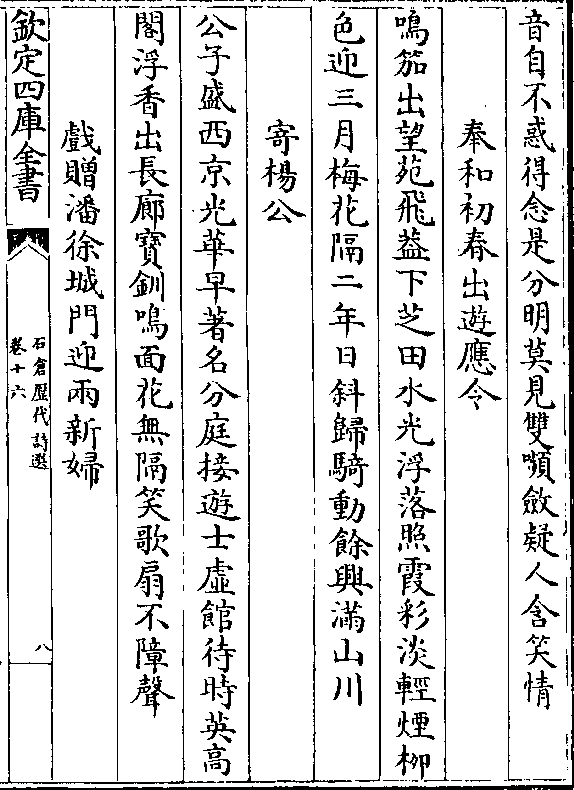 音自不惑得念是分明莫見雙嚬斂疑人含笑情
奉和初春出遊應令
鳴笳出望苑飛葢下芝田水光浮落照霞彩淡輕煙栁
色迎三月梅花隔二年日斜歸騎動餘興滿山川
寄楊公
公子盛西京光華早著名分庭接遊士虛館待時英高
閣浮香出長廊寶釧鳴面花無隔笑歌扇不障聲
戲贈潘徐城門迎兩新婦
欽定四庫全書
石倉歴代詩選
卷十六
八